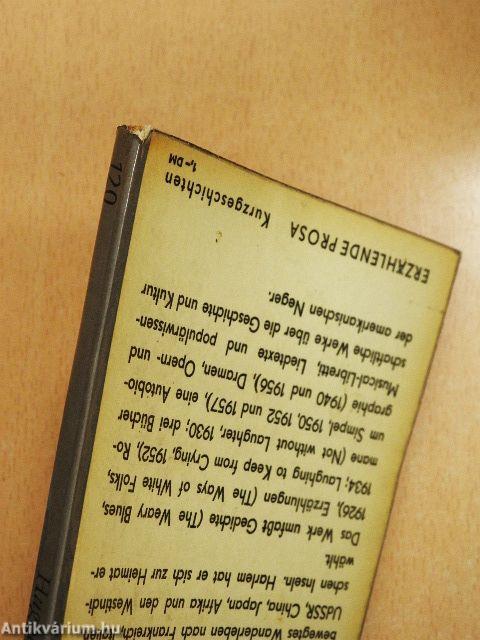 bewegtes Wanderleben nach Frankreich,
UdSSR, China, Japan, Afrika und den Westindi-
schen Inseln. Harlem hat er sich zur Heimat er-
wählt.
Das Werk umfaßt Gedichte (The Weary Blues,
1926), Erzählungen (The Ways of White Folks,
1934; Laughing to Keep from Crying, 1952), Ro-
mane (Not without Laughter, 1930; drei Bücher
um Simpel, 1950, 1952 und 1957), eine Autobio-
graphie (1940 und 1956), Dramen, Opern- und
Musical-Libretti, Liedtexte und populärwissen-
schaftliche Werke über die Geschichte und Kultur
der amerikanischen Neger.
ERZÄHLENDE PROSA
Kurzgeschichten
1,– DM
120
Antikvárium.hu